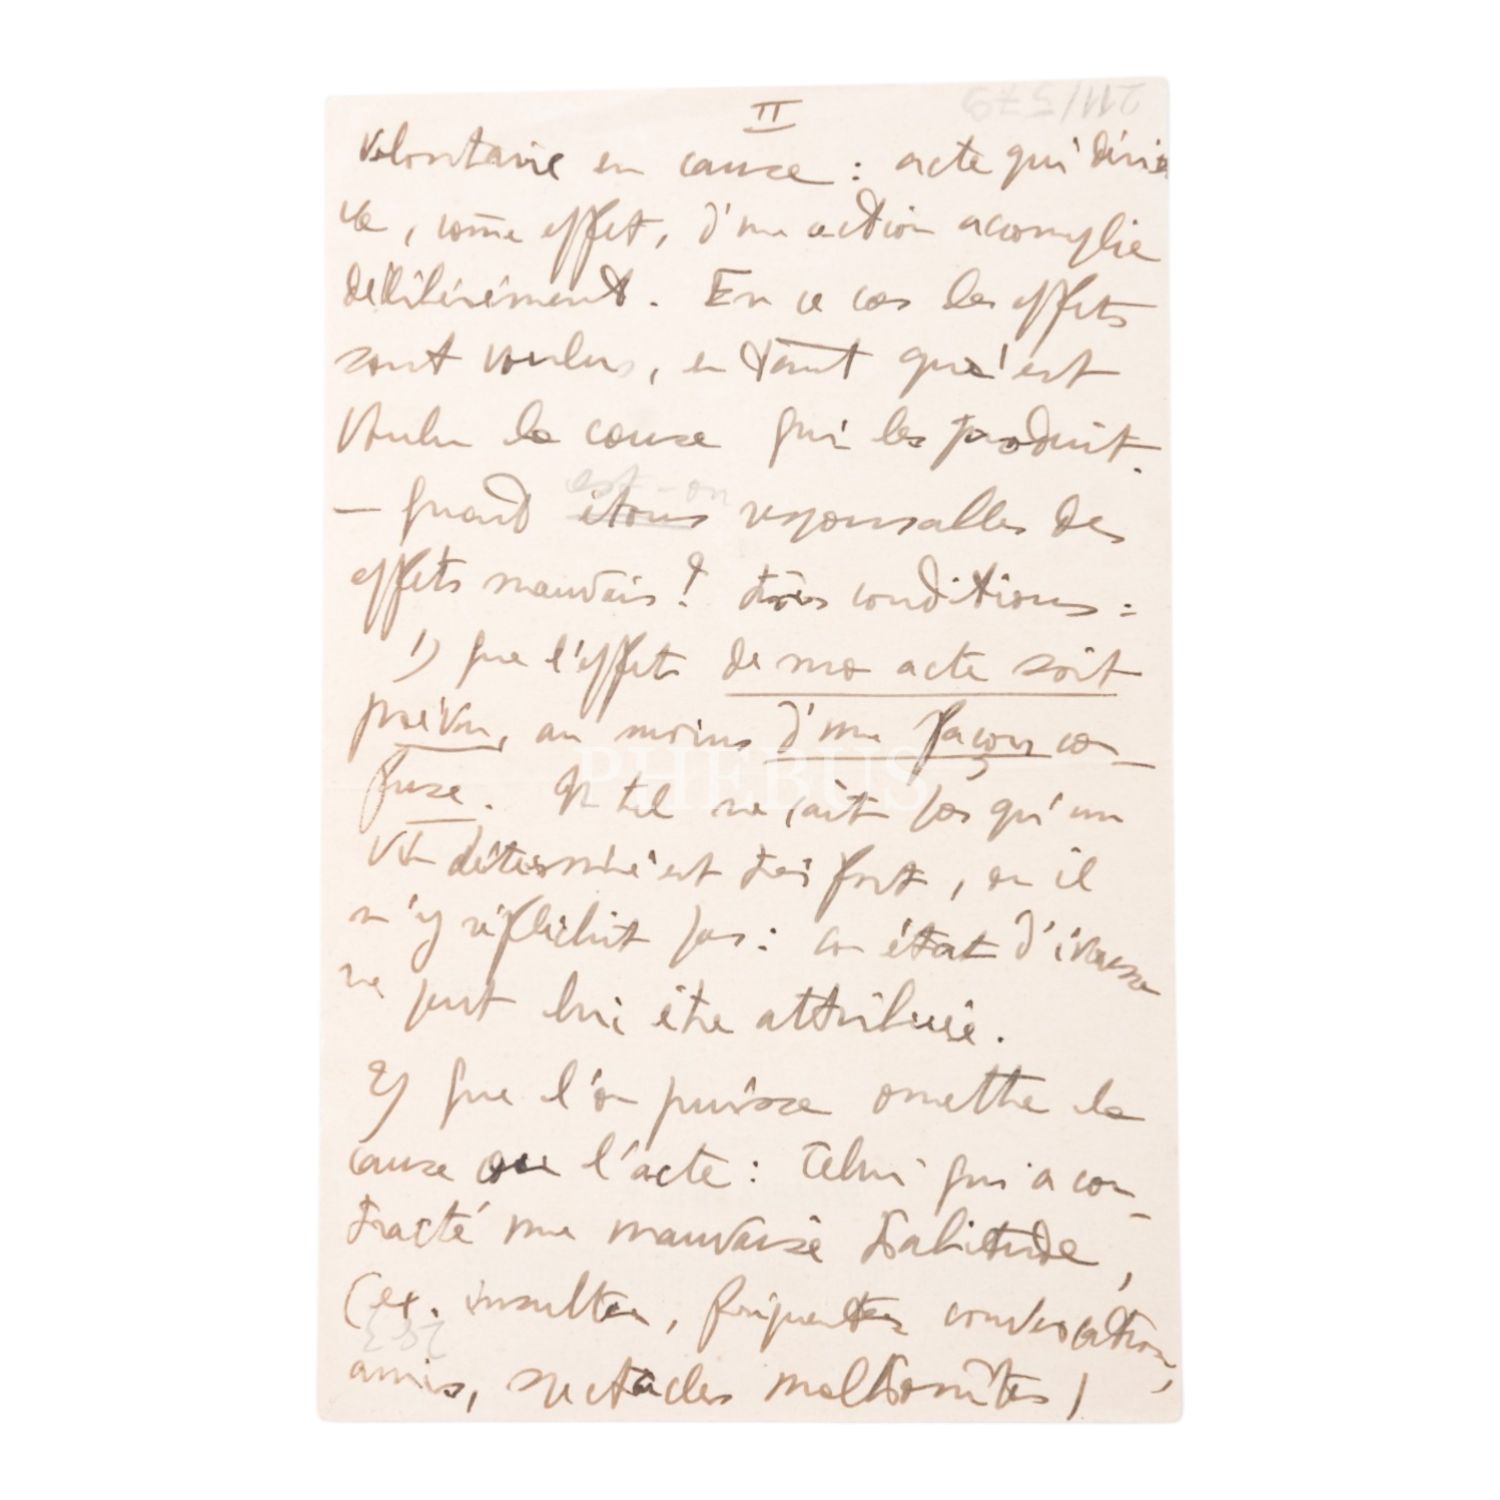 II
211/579
volontaire en cause : acte qui déri-
ve, come effet, d'une action acomplie
délibérément. En ce cas les effets
sont voulus, en tant qu'est
voulu la cause qui les produit.
est-on
— quand étous responsables des
effets mauvais? trois conditions :
1) que l'effet de mo acte soit
prévu, au moins d'une façon co-
fuse. Un tel ne sait pas qu'un
vin déterminé est très fort, ou il
n'y réfléchit pas : so état d'ivresse
ne peut lui être attribué.
2) que l'on puisse omettre la
cause ou l'acte : Celui qui a con-
tracté une mauvaise habitude,
(ex. insulter, fréquenter
amis, spectacles malhonêtes)
283
PHEBUS